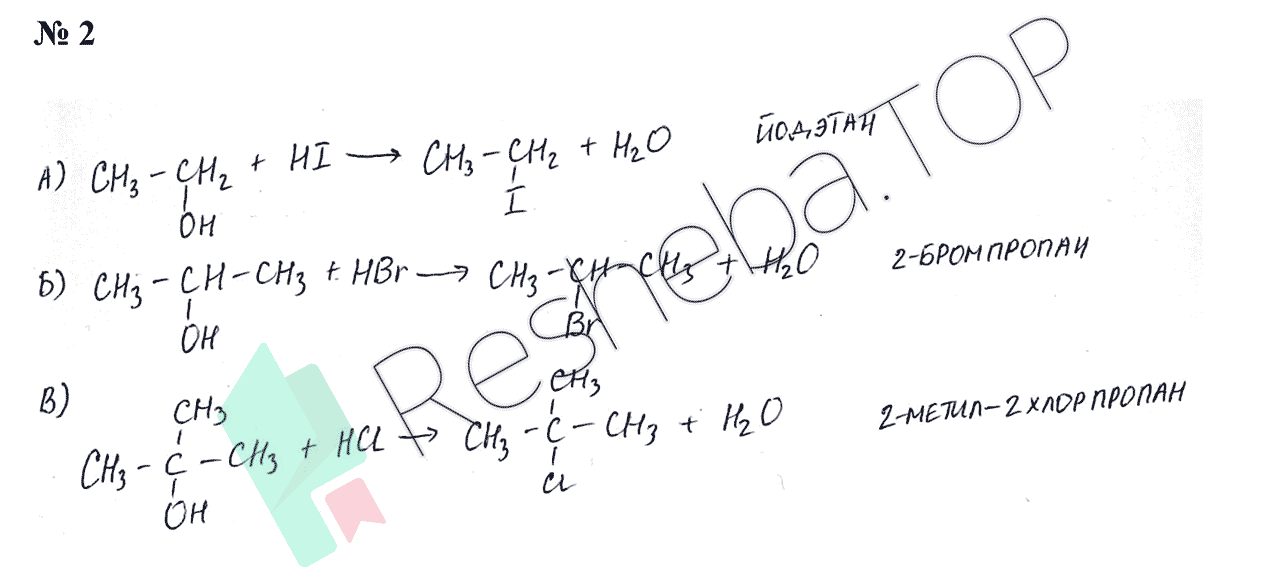 № 2
А) CH₃ – CH₂ + HI ⟶ CH₃ – CH₂ + H₂O йодэтан
OH I
Б) CH₃ – CH – CH₃ + HBr ⟶ CH₃ – CH – CH₃ + H₂O 2-бромпропан
OH Br
В)
CH₃ CH₃
CH₃ – C – CH₃ + HCl ⟶ CH₃ – C – CH₃ + H₂O 2-метил-2хлорпропан
OH Cl
Resheba.TOP